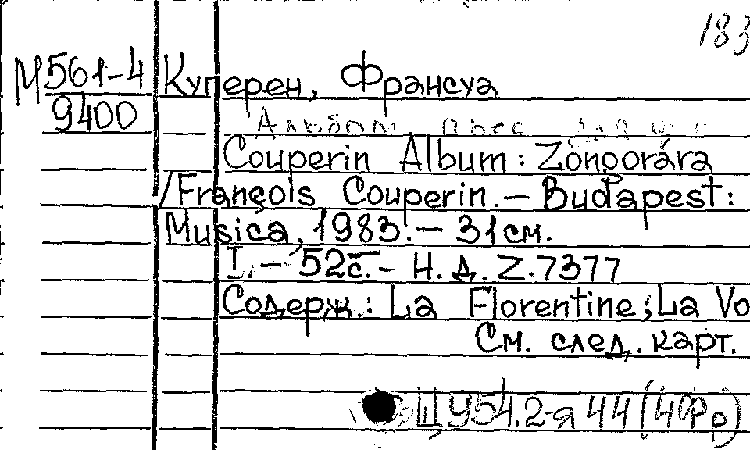 183
М561-4 Куперен, Франсуа
9400
Альбом пьес для
Couperin Album: Zongorára
/François Couperin. — Budapest:
Musica, 1983. — 31см.
I. — 52с. — Н.д. Z.7377
Содерж.: La Florentine; La Vo
См. след. карт.
Щ 954.2-я 44